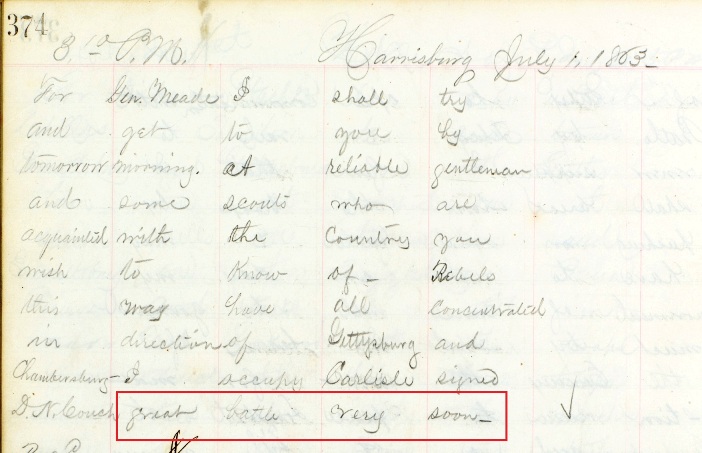 374
3 10 P.M. Harrisburg July 1, 1863
For Gen. Meade I shall try
and get to you by
tomorrow morning. A reliable gentleman
and some scouts who are
acquainted with the Country you
wish to Know of - Rebels
this way have all concentrated
in direction of Gettysburg and
Chambersburg - I occupy Carlisle signed
D. N. Couch great battle very soon